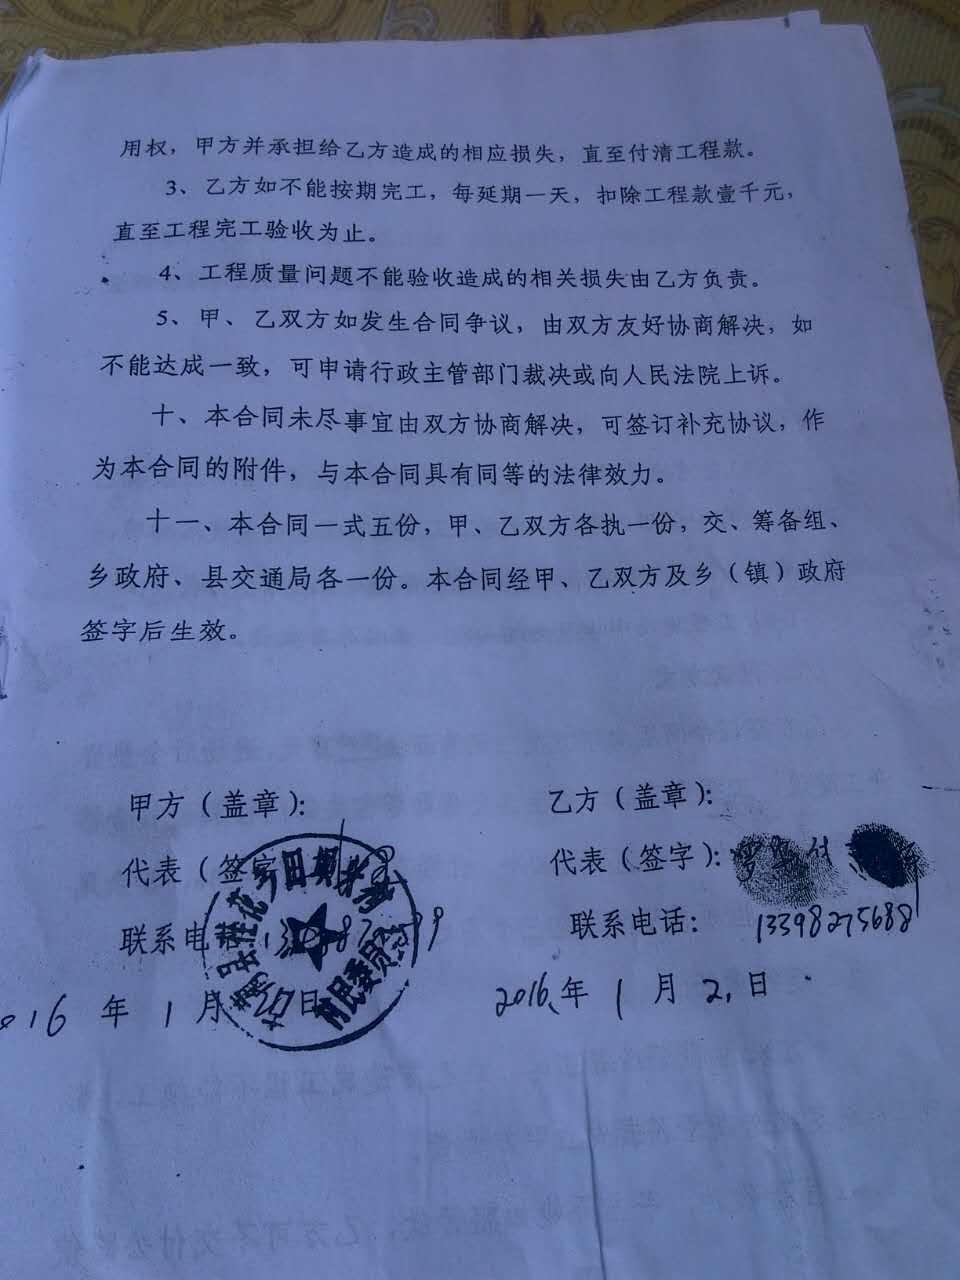 用权，甲方并承担给乙方造成的相应损失，直至付清工程款。
3、乙方如不能按期完工，每延期一天，扣除工程款壹千元，
直至工程完工验收为止。
4、工程质量问题不能验收造成的相关损失由乙方负责。
5、甲、乙双方如发生合同争议，由双方友好协商解决，如
不能达成一致，可申请行政主管部门裁决或向人民法院上诉。
十、本合同未尽事宜由双方协商解决，可签订补充协议，作
为本合同的附件，与本合同具有同等的法律效力。
十一、本合同一式五份，甲、乙双方各执一份，交、筹备组、
乡政府、县交通局各一份。本合同经甲、乙双方及乡（镇）政府
签字后生效。
甲方（盖章）：
乙方（盖章）：
代表（签字
代表（签字）：
联系电话
联系电话： 13398275688
村民委员会
016 年 1 月 日
2016年 1 月 2 日